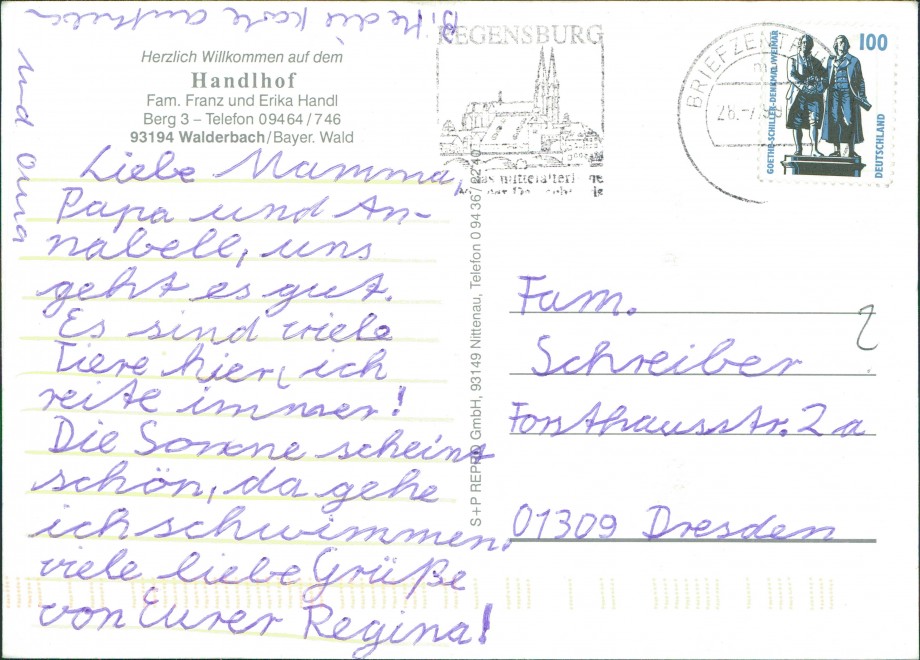 Bitte die Karte aufheben
und Oma
Herzlich Willkommen auf dem
Handlhof
Fam. Franz und Erika Handl
Berg 3 – Telefon 0 94 64 / 7 46
93194 Walderbach/Bayer. Wald
Liebe Mamma,
Papa und An-
nabell, uns
geht es gut.
Es sind viele
Tiere hier, ich
reite immer!
Die Sonne scheint
schön, da gehe
ich schwimmen.
viele liebe Grüße
von Eurer Regina!
S+P REPRO GmbH, 93149 Nittenau, Telefon 0 94 36 / 22 40
REGENSBURG
BRIEFZENTRUM
GOETHE-SCHILLER-DENKMAL/WEIMAR
100
DEUTSCHLAND
Fam.
Schreiber
Forsthausstr. 2 a
01309 Dresden